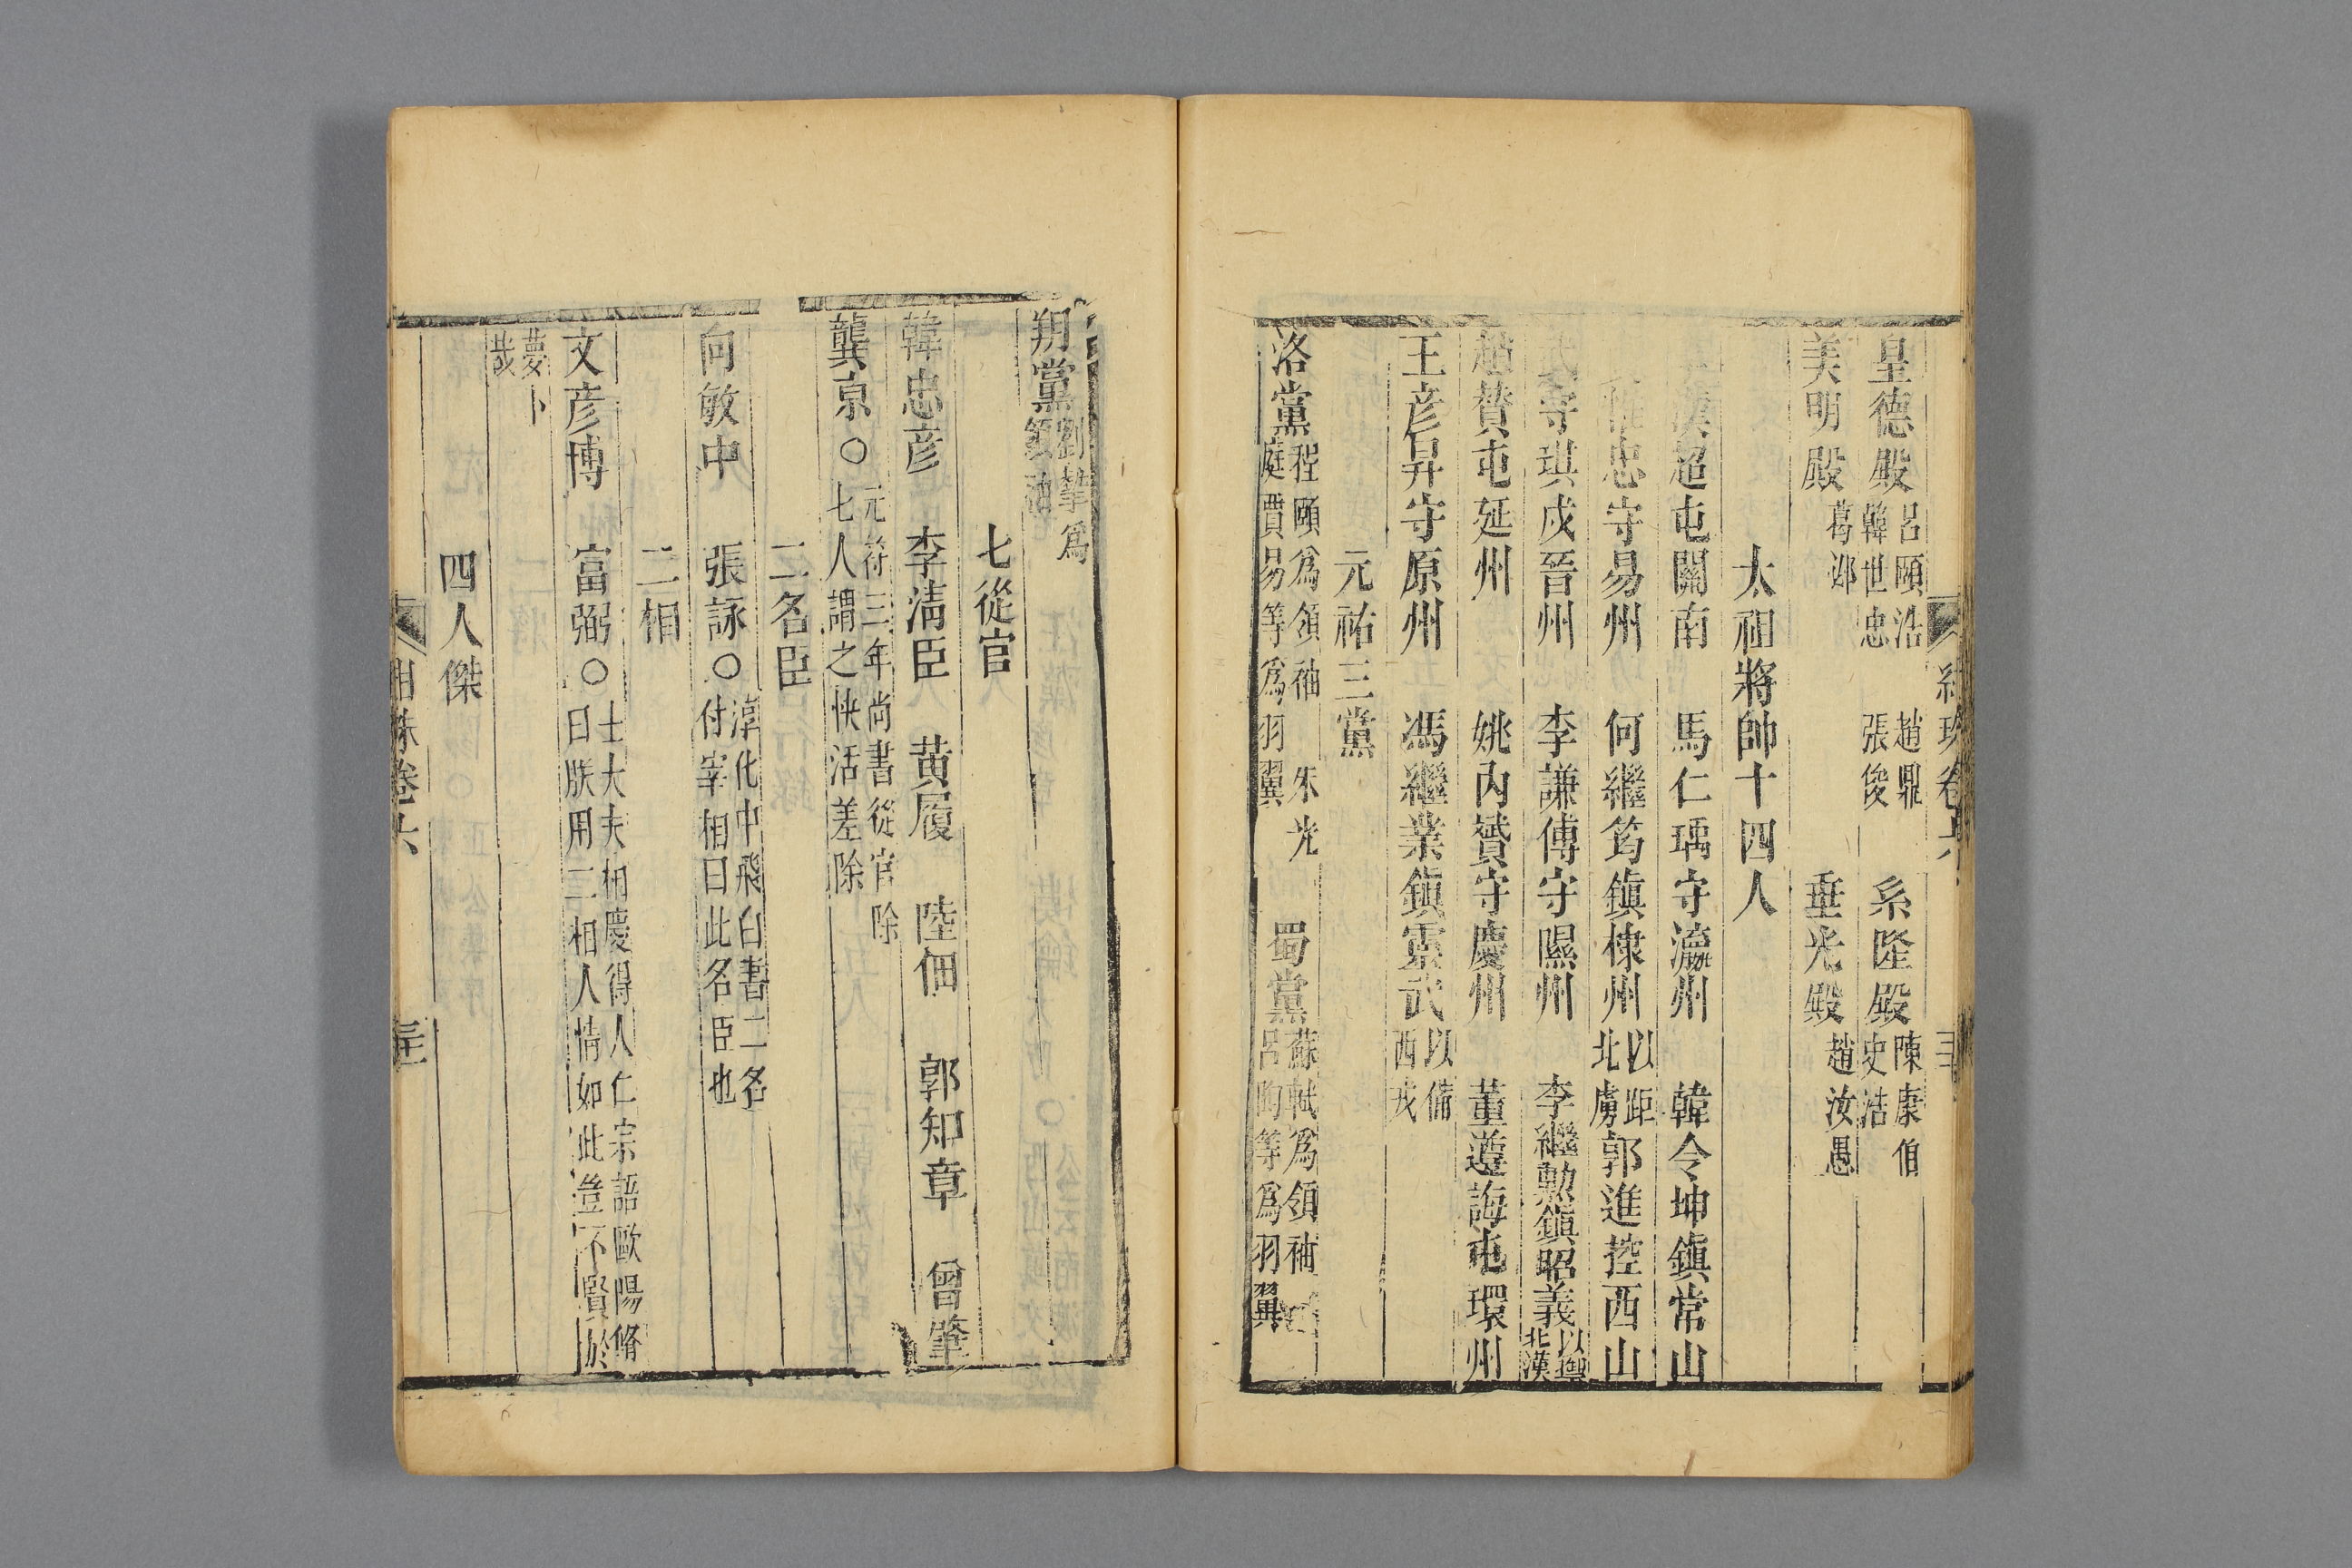 皇德殿 呂頤浩 韓世忠 趙鼎 張俊 系隆殿 陳康伯 史浩
美明殿 葛邲 垂光殿 趙汝愚
太祖將帥十四人
漢超屯關南 馬仁瑀守瀛州 韓令坤鎭常山
惟忠守易州 何繼筠鎭棣州 以距北虜 郭進控西山
守琪戍晉州 李謙傅守隰州 李繼勳鎭昭義 以禦北漢
趙贊屯延州 姚內贇守慶州 董遵誨屯環州
王彥昇守原州 馮繼業鎭靈武 以備西戎
元祐三黨
洛黨 程頤爲領袖 朱光庭賈易等爲羽翼 蜀黨 蘇軾爲領袖 呂陶等爲羽翼
朔黨 劉摯爲
七從官
韓忠彥 李淸臣 黃履 陸佃 郭知章 曾肇
龔原○元符三年尚書從官除七人謂之快活差除
二名臣
向敏中 張詠○淳化中飛白書二名付宰相曰此名臣也
二相
文彥博 富弼○士大夫相慶得人仁宗語歐陽脩曰朕用二相人情如此豈不賢於
夢卜哉
四人傑
紺珠卷六